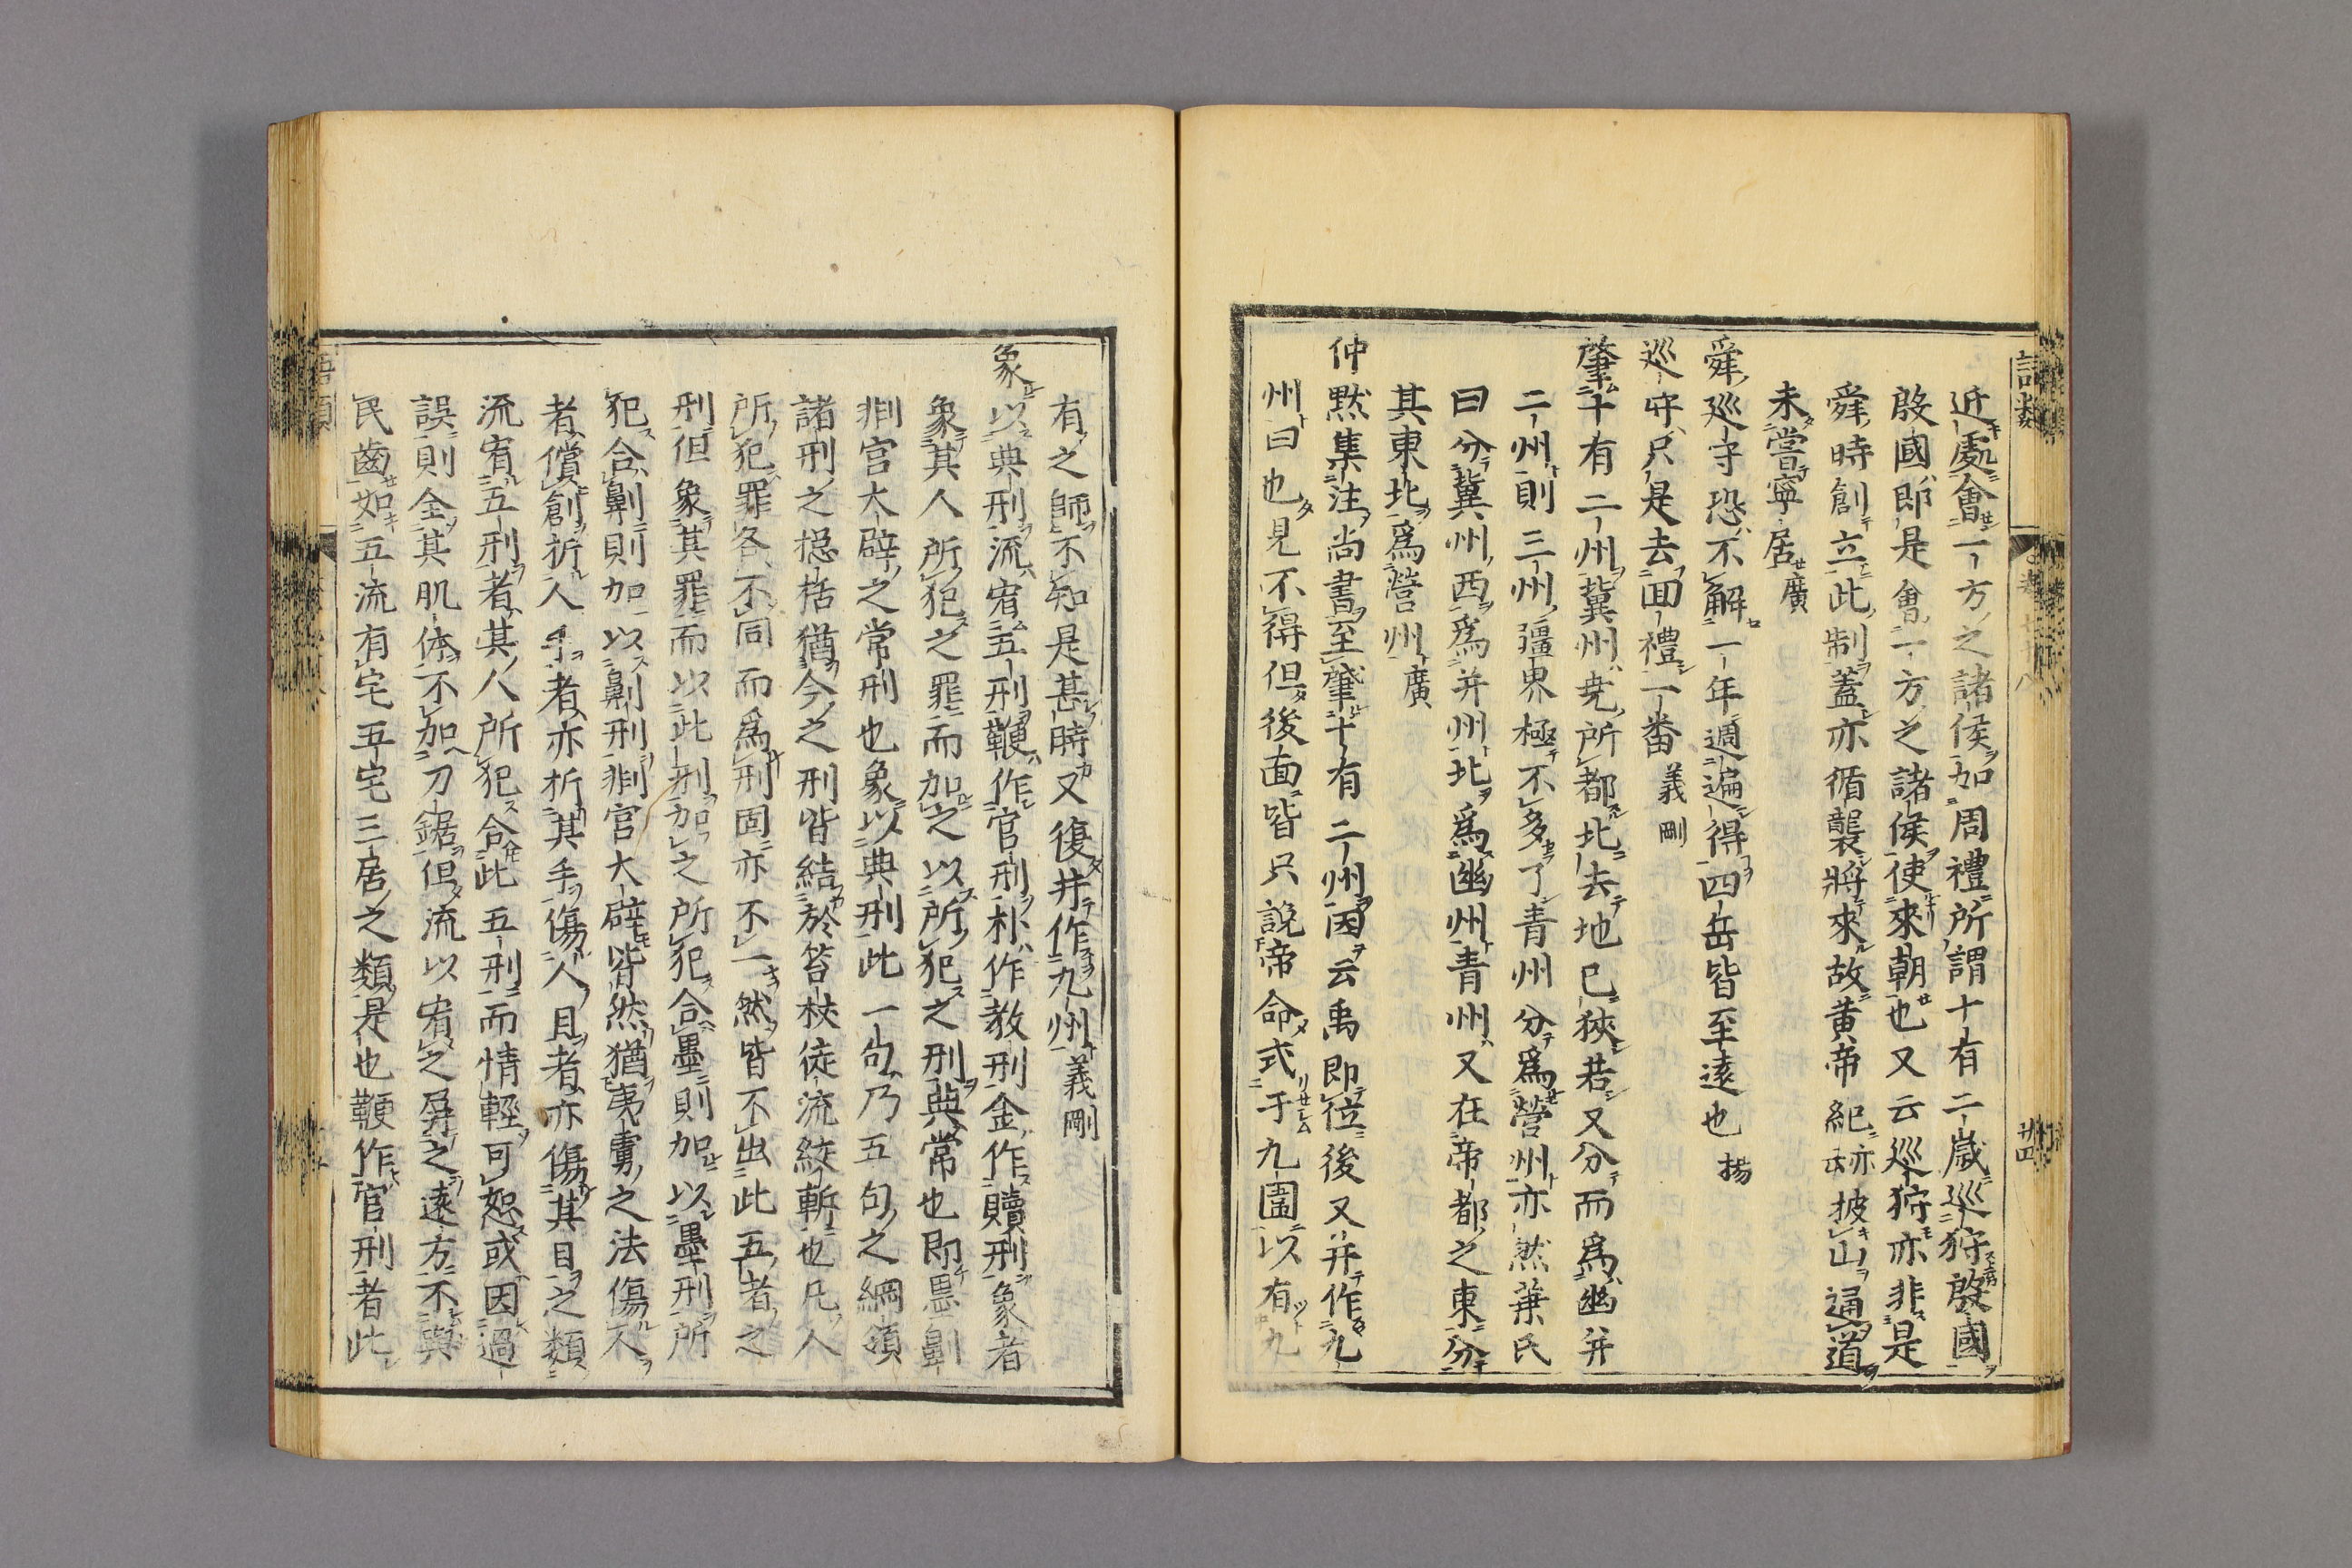 近處會一方之諸侯如周禮所謂十有二歲巡狩殷國
殷國即是會一方之諸侯使來朝也又云巡狩亦非是
舜時創立此制蓋亦循襲將來故黃帝紀亦云披山通道
未嘗寧居廣
舜巡守恐不解一年週遍得四岳皆至遠也揚
巡守只是去回禮一番義剛
肇十有二州冀州堯所都北去地已狹若又分而為幽并
二州則三州疆界極不多了青州分為營州亦然葉氏
曰分冀州西為并州北為幽州青州又在帝都之東分
其東北為營州廣
仲默集注尚書至肇十有二州因云禹即位後又并作九
州曰也見不得但後面皆只說帝命式于九圍以有九
有之師不知是甚時又復并作九州義剛
象以典刑流宥五刑鞭作官刑朴作教刑金作贖刑象者
象其人所犯之罪而加之以所犯之刑典常也即墨劓
剕宮大辟之常刑也象以典刑此一句乃五句之綱領
諸刑之揔括猶今之刑皆結於笞杖徒流絞斬也凡人
所犯罪各不同而為刑固亦不一然皆不出此五者之
刑但象其罪而以此刑加之所犯合墨則加以墨刑所
犯合劓則加以劓刑剕宮大辟皆然猶夷虜之法傷人
者償創折人手者亦折其手傷人目者亦傷其目之類
流宥五刑者其人所犯合此五刑而情輕可恕或因過
誤則全其肌体不加刀鋸但流以宥之屏之遠方不與
民齒如五流有宅五宅三居之類是也鞭作官刑者此